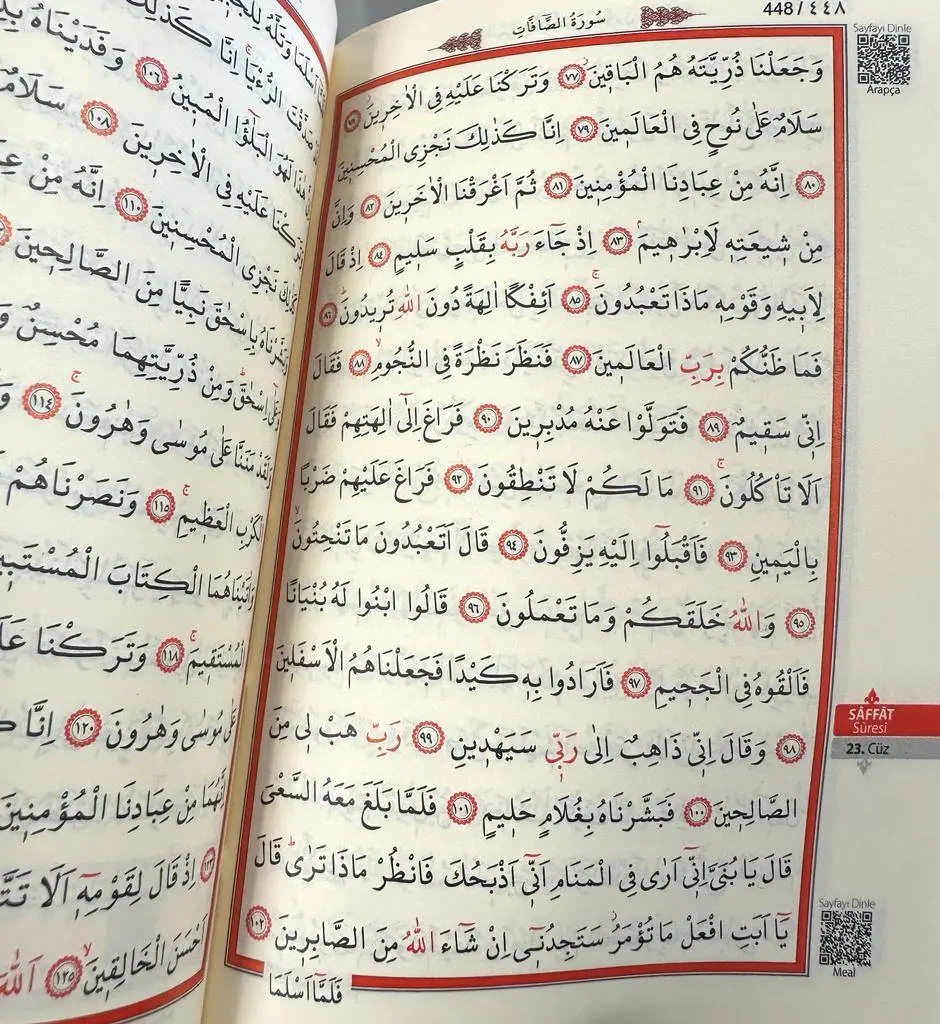 سُورَةُ الصَّافَّاتِ
448/٤٤٨
Sayfayı Dinle
Arapça
وَجَعَلْنَا ذُرِّيَّتَهُ هُمُ الْبَاقٖينَ ٧٧ وَتَرَكْنَا عَلَيْهِ فِى الْاٰخِرٖينَ ٧٨
سَلَامٌ عَلٰى نُوحٍ فِى الْعَالَمٖينَ ٧٩ اِنَّا كَذٰلِكَ نَجْزِى الْمُحْسِنٖينَ
٨٠ اِنَّهُ مِنْ عِبَادِنَا الْمُؤْمِنٖينَ ٨١ ثُمَّ اَغْرَقْنَا الْاٰخَرٖينَ ٨٢ وَاِنَّ
مِنْ شٖيعَتِهٖ لَاِبْرٰهٖيمَ ٨٣ اِذْ جَٓاءَ رَبَّهُ بِقَلْبٍ سَلٖيمٍ ٨٤ اِذْ قَالَ
لِاَبٖيهِ وَقَوْمِهٖ مَاذَا تَعْبُدُونَ ٨٥ اَئِفْكًا اٰلِهَةً دُونَ اللّٰهِ تُرٖيدُونَ ٨٦
فَمَا ظَنُّكُمْ بِرَبِّ الْعَالَمٖينَ ٨٧ فَنَظَرَ نَظْرَةً فِى النُّجُومِ ٨٨ فَقَالَ
اِنّٖى سَقٖيمٌ ٨٩ فَتَوَلَّوْا عَنْهُ مُدْبِرٖينَ ٩٠ فَرَاغَ اِلٰٓى اٰلِهَتِهِمْ فَقَالَ
اَلَا تَاْكُلُونَ ٩١ مَا لَكُمْ لَا تَنْطِقُونَ ٩٢ فَرَاغَ عَلَيْهِمْ ضَرْبًا
بِالْيَمٖينِ ٩٣ فَاَقْبَلُٓوا اِلَيْهِ يَزِفُّونَ ٩٤ قَالَ اَتَعْبُدُونَ مَا تَنْحِتُونَ
٩٥ وَاللّٰهُ خَلَقَكُمْ وَمَا تَعْمَلُونَ ٩٦ قَالُوا ابْنُوا لَهُ بُنْيَانًا
فَاَلْقُوهُ فِى الْجَحٖيمِ ٩٧ فَاَرَادُوا بِهٖ كَيْدًا فَجَعَلْنَاهُمُ الْاَسْفَلٖينَ
٩٨ وَقَالَ اِنّٖى ذَاهِبٌ اِلٰى رَبّٖى سَيَهْدٖينِ ٩٩ رَبِّ هَبْ لٖى مِنَ
الصَّالِحٖينَ ١٠٠ فَبَشَّرْنَاهُ بِغُلَامٍ حَلٖيمٍ ١٠١ فَلَمَّا بَلَغَ مَعَهُ السَّعْىَ
قَالَ يَا بُنَىَّ اِنّٖٓى اَرٰى فِى الْمَنَامِ اَنّٖٓى اَذْبَحُكَ فَانْظُرْ مَاذَا تَرٰى قَالَ
يَٓا اَبَتِ افْعَلْ مَا تُؤْمَرُ سَتَجِدُنٖٓى اِنْ شَٓاءَ اللّٰهُ مِنَ الصَّابِرٖينَ ١٠٢
فَلَمَّٓا اَسْلَمَا
SÂFFÂT
Sûresi
23. Cüz
Sayfayı Dinle
Meal
الرُّءْيَا اِنَّا كَذٰلِكَ
لَهُوَ الْبَلٰٓؤُا الْمُبٖينُ ١٠٦ وَفَدَيْنَاهُ
عَلَيْهِ فِى الْاٰخِرٖينَ ١٠٨ سَلَامٌ
نَجْزِى الْمُحْسِنٖينَ ١١٠ اِنَّهُ مِنْ
بِاِسْحٰقَ نَبِيًّا مِنَ الصَّالِحٖينَ
اِسْحٰقَ وَمِنْ ذُرِّيَّتِهِمَا مُحْسِنٌ
مَنَنَّا عَلٰى مُوسٰى وَهٰرُونَ ١١٤
الْكَرْبِ الْعَظٖيمِ ١١٥ وَنَصَرْنَاهُمْ
وَاٰتَيْنَاهُمَا الْكِتَابَ
الْمُسْتَقٖيمَ ١١٨ وَتَرَكْنَا
عَلٰى مُوسٰى وَهٰرُونَ ١٢٠ اِنَّا
مِنْ عِبَادِنَا الْمُؤْمِنٖينَ
اِذْ قَالَ لِقَوْمِهٖٓ اَلَا
اَحْسَنَ الْخَالِقٖينَ ١٢٥ اَللّٰهَ